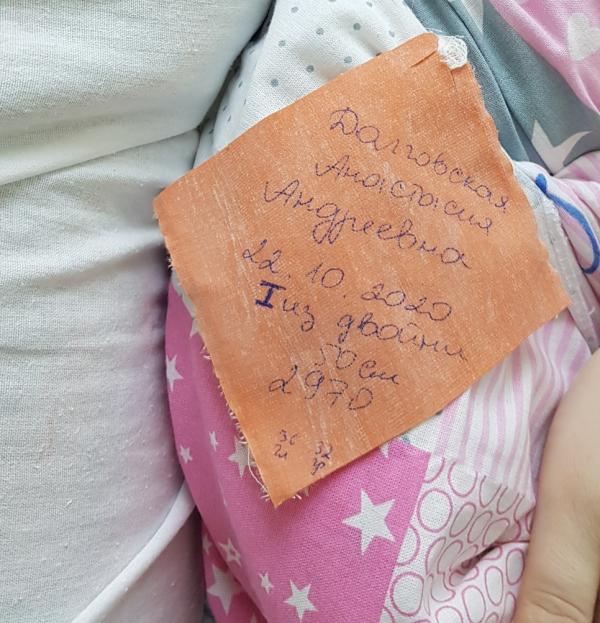 Далговская
Анастасия
Андреевна
22.10.2020
I из двойни
50 см
2970